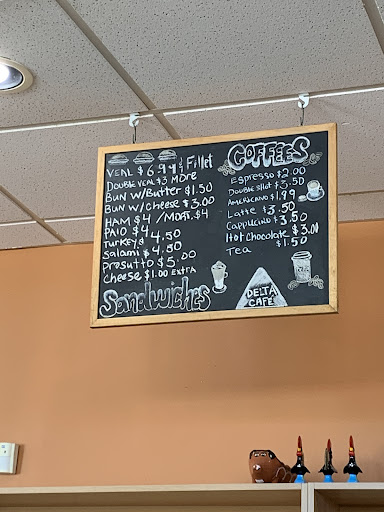 VEAL $6.99 & Fillet
DOUBLE VEAL $3 MORE
BUN W/BUTTER $1.50
BUN W/Cheese $3.00
HAM $4 / MORT. $4
PAIO $4
TURKEY $4.50
Salami $4.50
Prosutto $5.00
Cheese $1.00 EXTRA
Sandwiches
COFFEES
Espresso $2.00
DOUBLE SHOT $3.50
AMERICANO $1.99
Latte $3.50
Cappuccino $3.50
Hot Chocolate $3.00
Tea $1.50
DELTA
CAFÉ